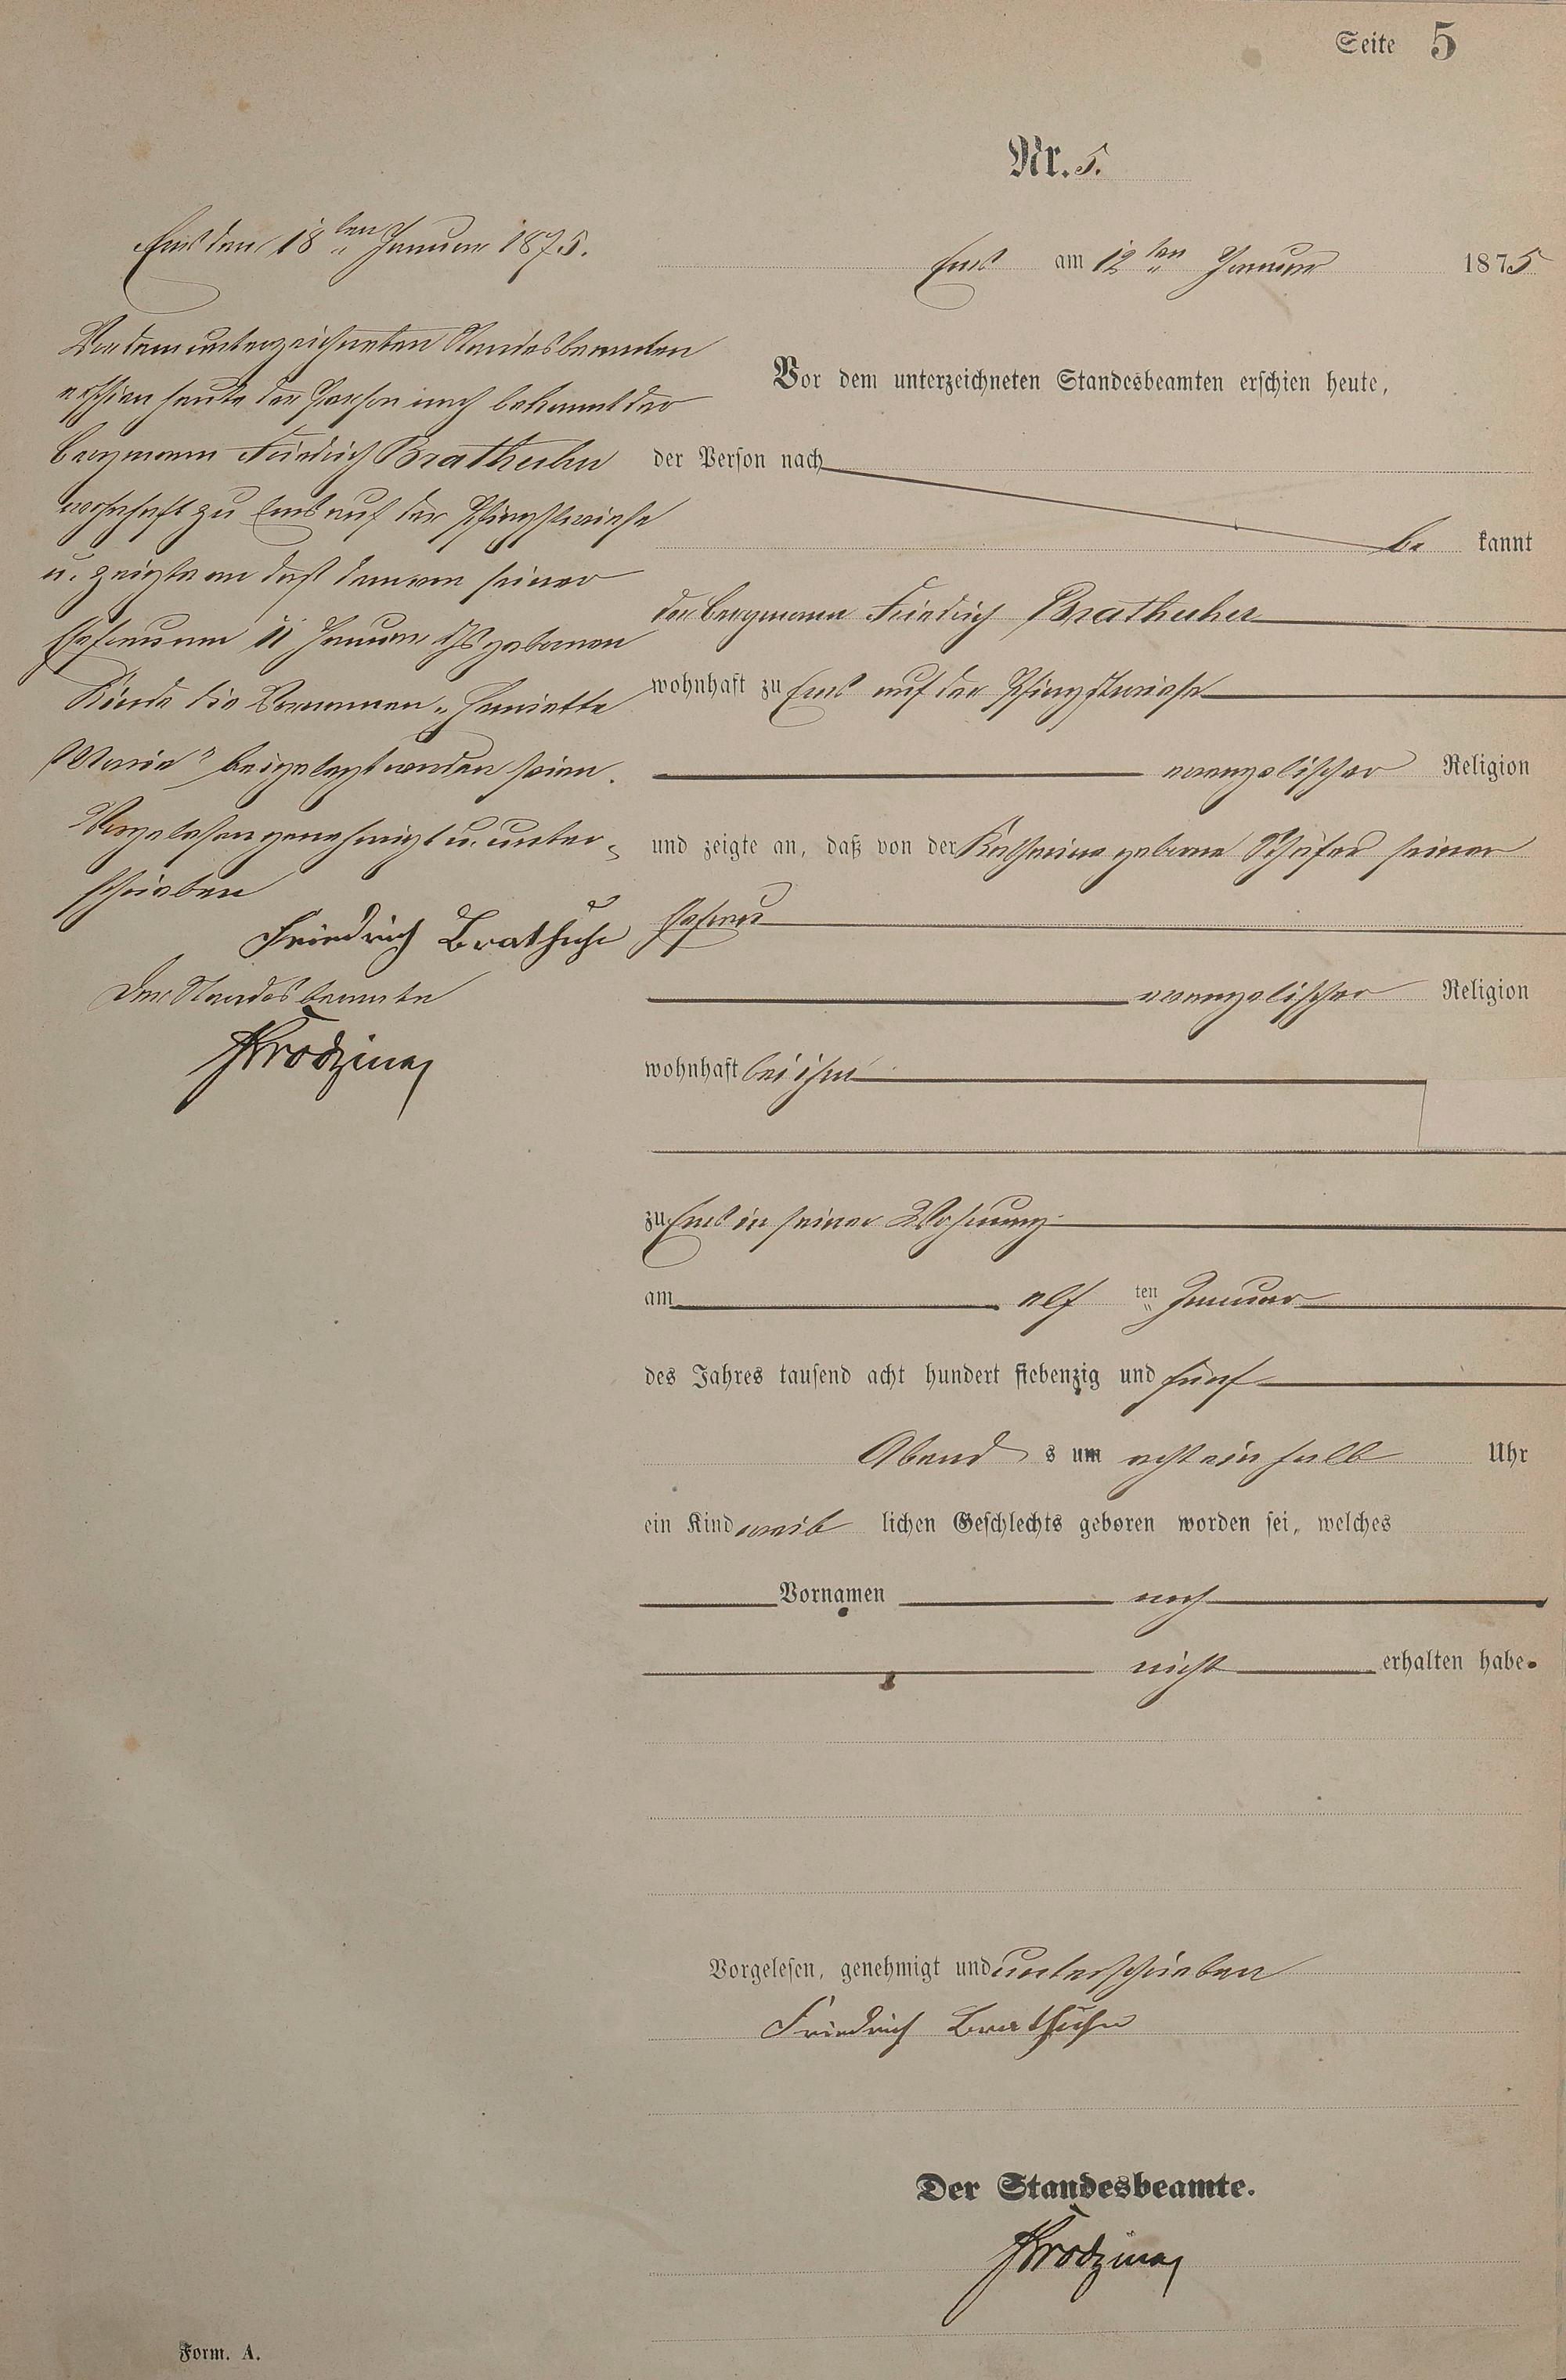 Seite 5
Nr. 5.
Ems den 18ten Januar 1875.
Vor dem unterzeichneten Standesbeamten
erschien heute der Person nach bekannt der
Bergmann Friedrich Brathuhn
wohnhaft zu Ems auf der Pfingstwiese
u. zeigte an daß dem von seiner
Ehefrau am 11 Januar ds Js gebornen
Kinde die Vornamen „Henriette
Maria" beigelegt worden seien.
Vorgelesen genehmigt u. unter-
schrieben
Friedrich Brathuhn
Der Standesbeamte
Ems am 12ten Januar 1875
Vor dem unterzeichneten Standesbeamten erschien heute,
der Person nach
be kannt
der Bergmann Friedrich Brathuher
wohnhaft zu Ems auf der Pfingstwiese
evangelischer Religion
und zeigte an, daß von der Katharina geborne Schäfer seiner
Ehefrau
evangelischer Religion
wohnhaft bei ihm
zu Ems in seiner Wohnung
am elf ten Januar
des Jahres tausend acht hundert siebenzig und fünf
Abend s um acht ein halb Uhr
ein Kind weib lichen Geschlechts geboren worden sei, welches
Vornamen noch
nicht erhalten habe.
Vorgelesen, genehmigt und unterschrieben
Friedrich Brathuhn
Der Standesbeamte.
Form. A.